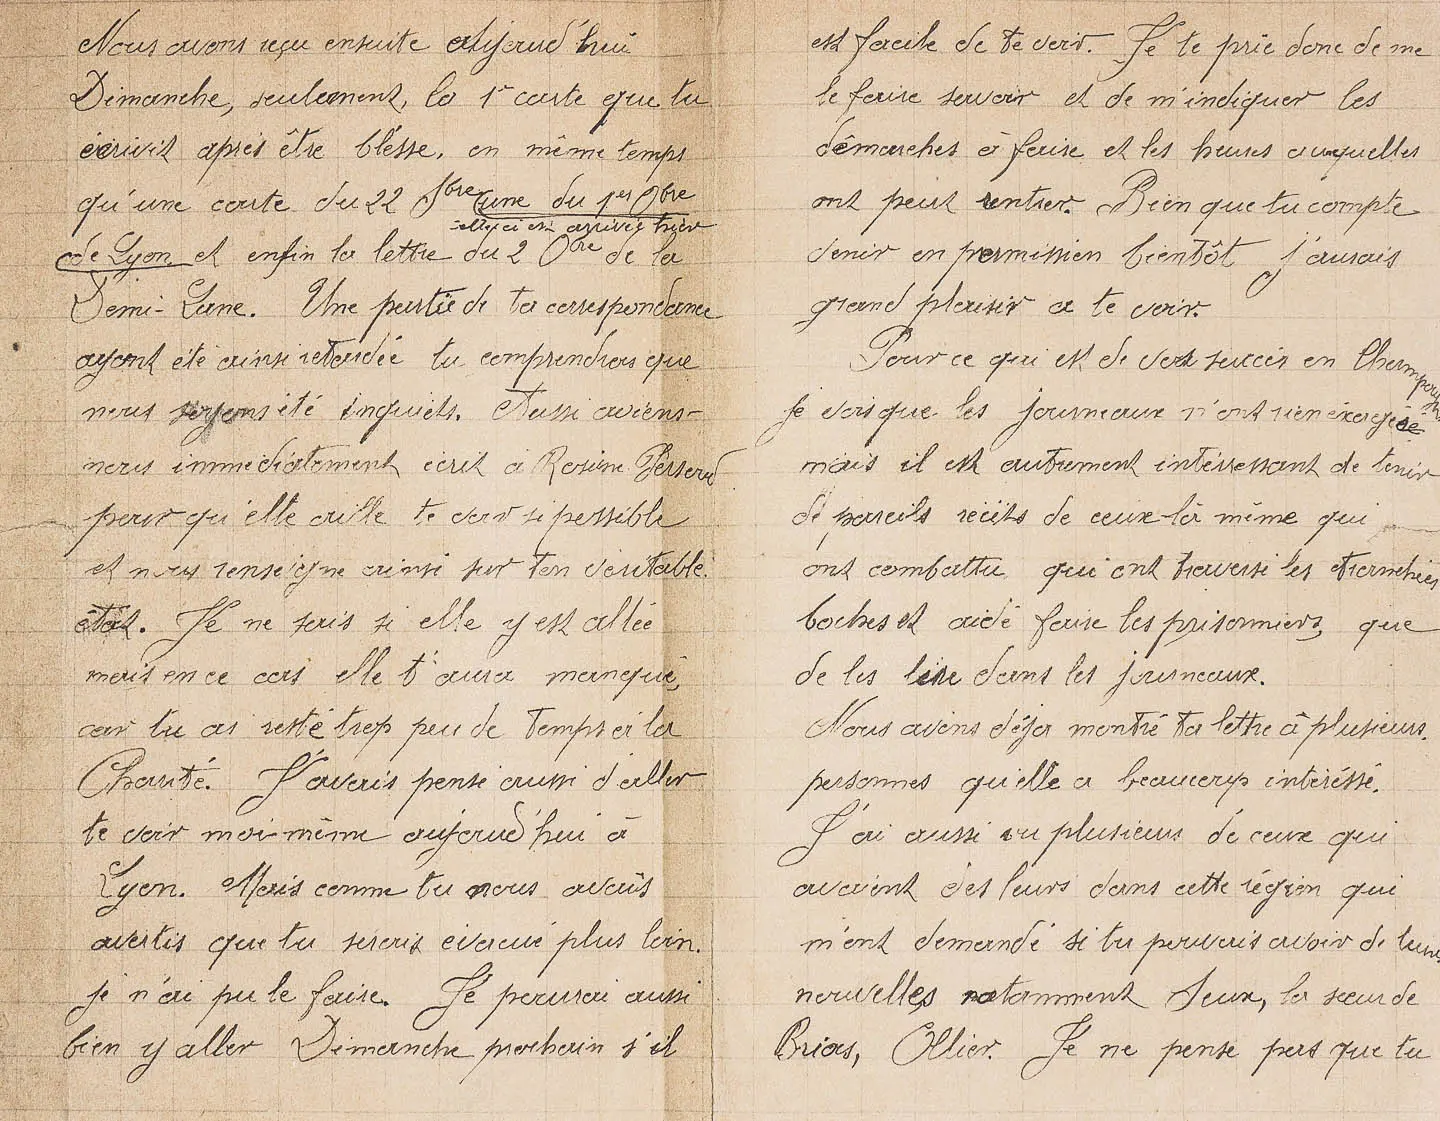 Nous avons reçu ensuite aujourd'hui
Dimanche, seulement, la 1re carte que tu
écrivit après être blésse, en même temps
qu'une carte du 22 7bre, une du 1er 8bre
celle ci est arrivée hier
de Lyon et enfin la lettre du 2 8bre de la
Demi-Lune. Une partie de ta correspondance
ayant été ainsi retardée tu comprendras que
nous soyons été inquiets. Aussi avions-
nous immédiatement écrit à Rosine
pour qu'elle aille te voir si possible
et nous renseigne ainsi sur ton véritable
état. Je ne sais si elle y est allée
mais en ce cas elle t'aura manqué,
car tu as resté trop peu de temps à la
Charité. J'avais pensé aussi d'aller
te voir moi-même aujourd'hui à
Lyon. Mais comme tu nous avais
avertis que tu serais évacué plus loin.
je n'ai pu le faire. Je pourrai aussi
bien y aller Dimanche prochain s'il
est facile de te voir. Je te prie donc de me
le faire savoir et de m'indiquer les
démarches à faire et les heures auquelles
ont peut rentrer. Bien que tu compte
venir en permission bientôt j'aurais
grand plaisir a te voir.
Pour ce qui est de vos succès en Champagne
je vois que les journeaux n'ont rien éxagéré
mais il est autrement intéressant de tenir
de pareils récits de ceux-là même qui
ont combattu qui ont traversé les tranchées
boches et aidé faire les prisonniers, que
de les lire dans les journeaux.
Nous avons déja montré ta lettre à plusieurs
personnes qu'elle a beaucoup intéréssé.
J'ai aussi vu plusieurs de ceux qui
avaient des leurs dans cette région qui
m'ont demandé si tu pouvais avoir de leurs
nouvelles, notamment Seux, la sœur de
Brias, Ollier. Je ne pense pas que tu